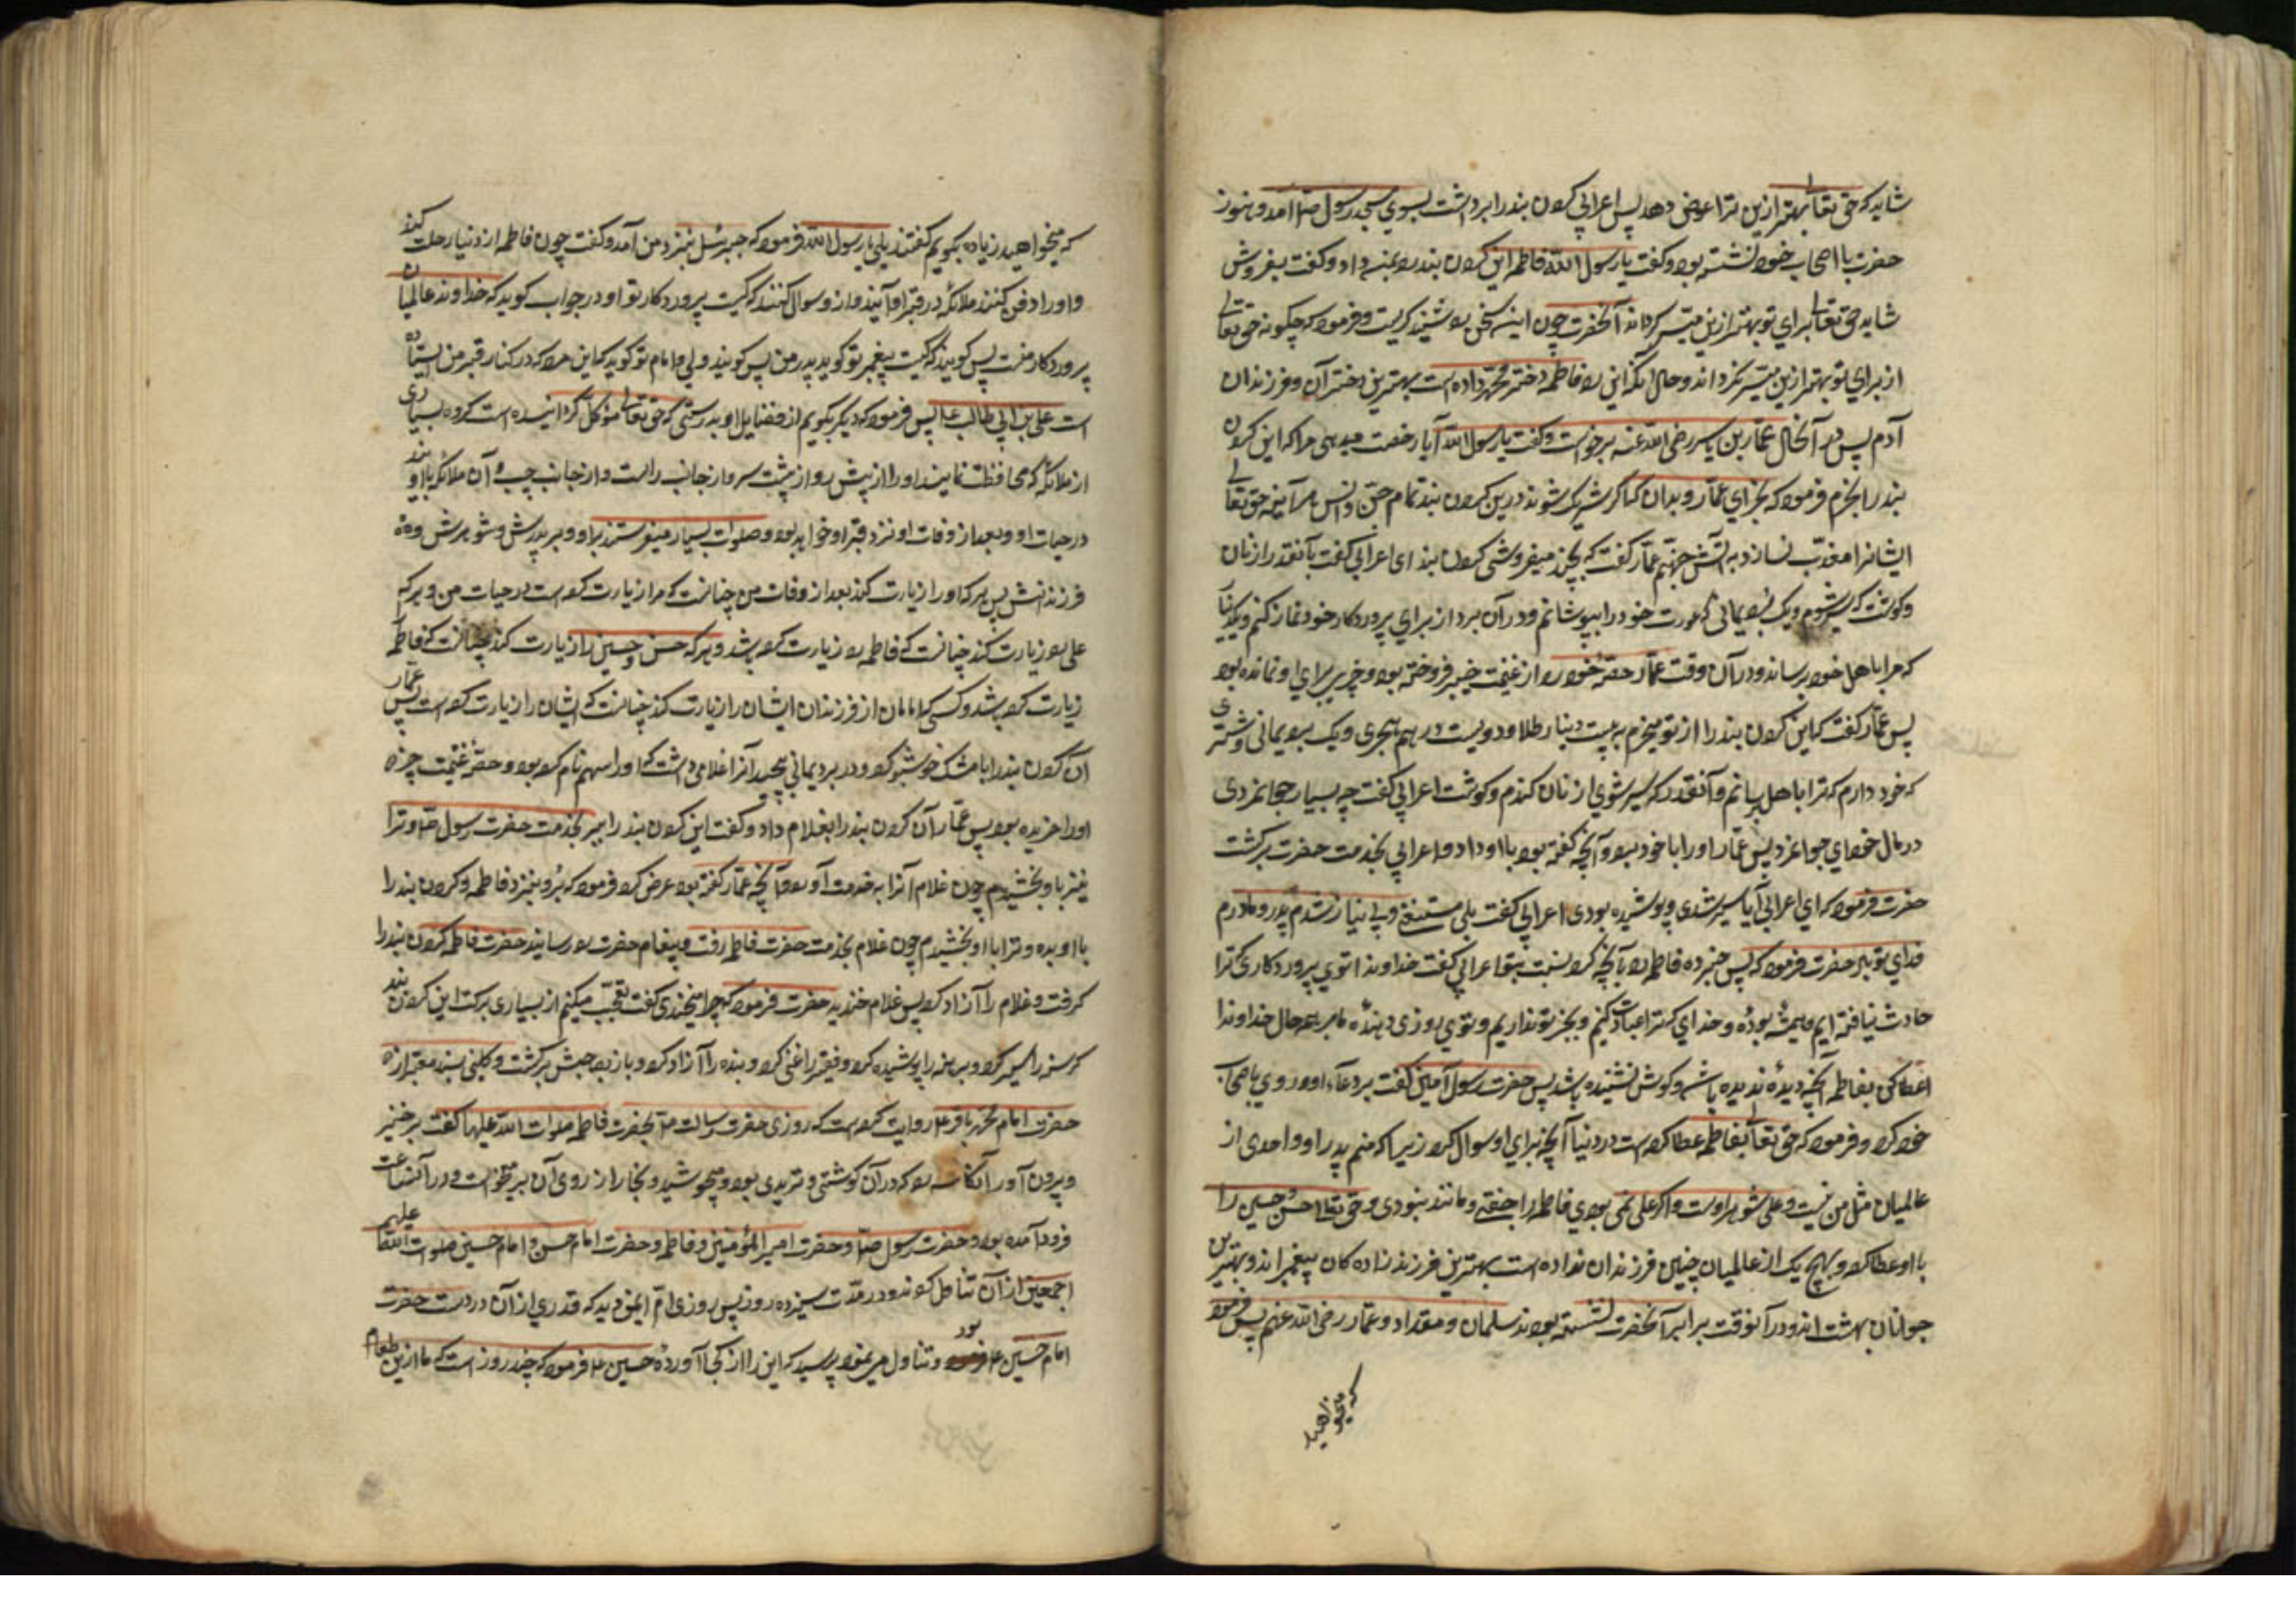 شاید که حق تعالی بهتر ازین ترا عوض دهد پس اعرابی کردن بند را برداشت بسوی مسجد رسول صلعم آمد و هنوز
حضرت با اصحاب خود نشسته بود و گفت یا رسول الله فاطمه این کردن بند را بمن داد و گفت بفروش
شاید حق تعالی برای تو بهتر ازین میسر کرداند آنحضرت چون این سخن را شنید کریست و فرمود که چکونه حق تعالی
از برای تو بهتر ازین میسر نکرداند و حال آنکه این را فاطمه دختر محمد داده است بهترین دختران و فرزندان
آدم پس در آنحال عمار بن یاسر رضی الله عنه برخواست و گفت یا رسول الله آیا رخصت میدهی مرا که این کردن
بند را بخرم فرمود که بخر ای عمار و بدان که اگر شریک شوند درین کردن بند تمام جن و انس هر آینه حق تعالی
ایشانرا معذب نسازد به آتش جهنم عمار گفت که بچند میفروشی کردن بند ای اعرابی گفت بآنقدر از نان
و گوشت که سیر شوم و یک برد یمانی که عورت خود را بپوشانم و در آن برد از برای پروردکار خود نماز کنم و یکدینار
که مرا باهل خود برساند و در آن وقت عمار حصه خود را از غنیمت خیبر فروخته بود و چیزی برای او نمانده بود
پس عمار گفت که این کردن بند را از تو میخرم به بیست دینار طلا و دویست درهم هجری و یک برد یمانی و شتری
که خود دارم که ترا باهل برسانم و آنقدر که سیر شوی از نان کندم و گوشت اعرابی گفت چه بسیار جوانمردی
در مال خود ای جوانمرد پس عمار او را با خود برد و آنچه گفته بود با او داد و اعرابی بخدمت حضرت برکشت
حضرت فرمود که ای اعرابی آیا سیر شدی و پوشیده بودی اعرابی گفت بلی مستغنی و بی نیاز شدم پدر و مادرم
فدای تو باد حضرت فرمود که پس جزا ده فاطمه را بآنچه کرد نسبت بتو اعرابی گفت خداوندا توی پروردکاری که ترا
حادث نیافته ایم و همیشه بودهٔ و خدای که ترا عبادت کنیم و بجز تو نداریم و توی روزی دهندهٔ ما بر هر حال خداوندا
اعطا کن بفاطمه آنچه دیدهٔ ندیده باشد و کوش نشنیده باشد پس حضرت رسول آمین گفت بر دعاء او و روی باصحاب
خود کرد و فرمود که حق تعالی بفاطمه عطا کرده است در دنیا آنچه برای او سوال کرد زیرا که منم پدر او و احدی از
عالمیان مثل من نیست و علی شوهر اوست و اگر علی نمی بودی فاطمه را جفتی و مانند نبودی و حق تعالی حسن و حسین را
با او عطا کرد و بهیچ یک از عالمیان چنین فرزندان نداده است بهترین فرزند زاده کان پیغمبرانند و بهترین
جوانان بهشت اند و در آنوقت برابر آنحضرت نشسته بودند سلمان و مقداد و عمار رضی الله عنهم پس فرمود
که میخواهید
که میخواهید زیاده بگویم گفتند بلی یا رسول الله فرمود که جبرئیل بنزد من آمد و گفت چون فاطمه از دنیا رحلت کند
و او را دفن کنند ملائکه در قبر او آیند و از و سوال کنند که کیست پروردکار تو او در جواب کوید که خداوند عالمیان
پروردکار منست پس کویند که کیست پیغمبر تو کوید پدر من پس کویند ولی و امام تو کوید که این مرد که در کنار قبر من ایستاده
است علی بن ابی طالب ع پس فرمود که دیکر بکویم از فضایل او بدرستی که حق تعالی موکل کردانیده است کروه بسیاری
از ملائکه که محافظت نمایند او را از پیش رو از پشت سر و از جانب راست و از جانب چپ آن ملائکه با او بند
در حیات او و بعد از وفات او نزد قبر او خواهد بود و صلوات بسیار میفرستند بر او و بر پدرش و شوهرش و
فرزندانش پس هر که او را زیارت کند بعد از وفات من چنانست که مرا زیارت کرده است در حیات من و هر که
علی را زیارت کند چنانست که فاطمه را زیارت کرده باشد و هر که حسن و حسین را زیارت کند چنانست که فاطمه
زیارت کرده باشد و کسی که امامان از فرزندان ایشان را زیارت کند چنانست که ایشان را زیارت کرده است پس عمار
آن کردن بند را با مشک خوشبو کرد و در برد یمانی پیچید آنرا غلامی داشت که او را سهم نام کرده بود و حصهٔ غنیمت خیبر
او را خریده بود پس عمار آن کردن بند را بغلام داد و گفت این کردن بند را ببر بخدمت حضرت رسول ص و ترا
نیز باو بخشیدم چون غلام آنرا به خدمت آورد و آنچه عمار گفته بود عرض کرد فرمود که برو بنزد فاطمه و کردن بند را
با او بده و ترا با او بخشیدم چون غلام بخدمت حضرت فاطمه رفت و پیغام حضرت را رسانید حضرت فاطمه کردن بند را
کرفت و غلام را آزاد کرد پس غلام خندید حضرت فرمود که چرا میخندی گفت تعجب میکنم از بسیاری برکت این کردن بند
کرسنه را سیر کرد و برهنه را پوشیده کرد و فقیر را غنی کرد و بنده را آزاد کرد و باز بصاحبش برکشت و کلینی بسند معتبر از
حضرت امام محمد باقر ع روایت کرده است که روزی حضرت رسالت ص بحضرت فاطمه صلوات الله علیها گفت برخیز
و بیرون آور آنکاسه را که در آن کوشتی و تریدی بود و میجوشید و بخار از روی آن برمیخواست و در آنساعت
فرود آمده بود و حضرت رسول ص و حضرت امیر المؤمنین و فاطمه و حضرت امام حسن و امام حسین صلوات الله علیهم
اجمعین از آن تناول کردند و در مدت سیزده روز پس روزی ام ایمن دید که قدری از آن در دست حضرت
امام حسین ع بود و تناول مینمود پرسید که این را از کجا آوردهٔ حسین ع فرمود که چند روز است که ما ازین طعام